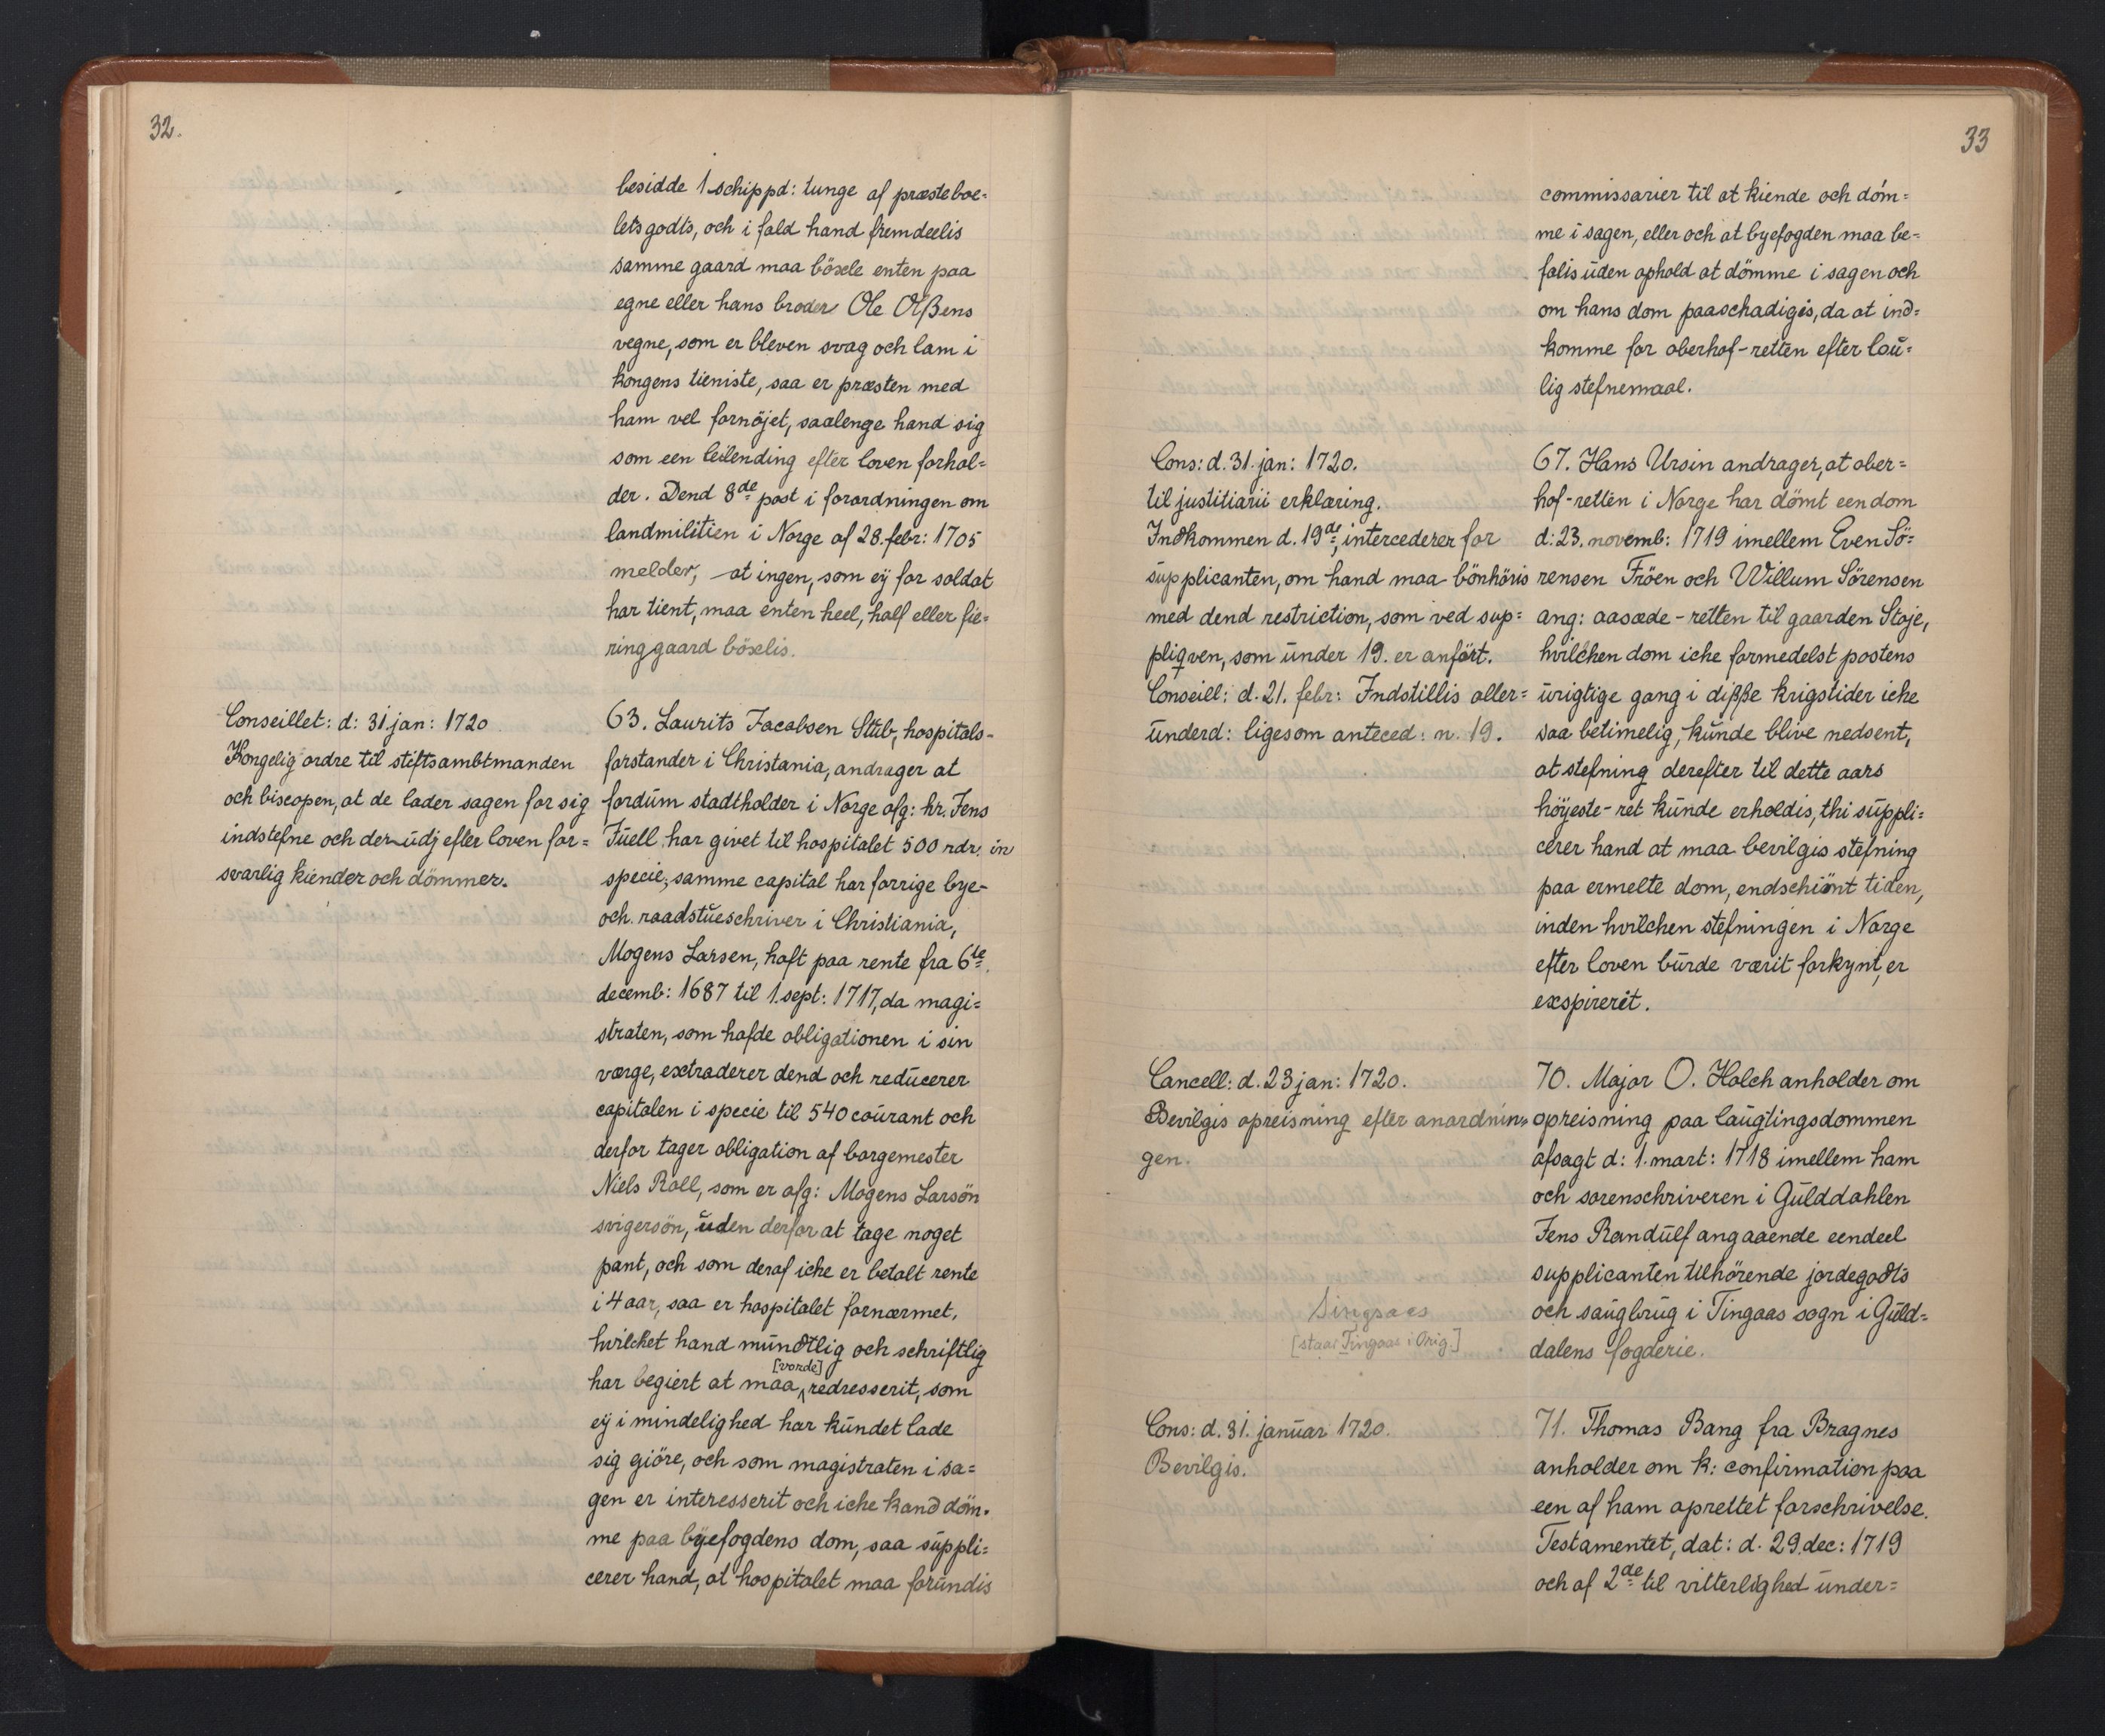 32.
besidde 1 schippd: tunge af præsteboe=
letsgodts, och i fald hand fremdeelis
samme gaard maa böxle enten paa
egne eller hans broder Ole Olßens
vegne, som er bleven svag och lam i
kongens tieniste, saa er præsten med
ham vel fornöjet, saalenge hand sig
som een leilending efter loven forhol=
der. Dend 8de post i forordningen om
landmilitien i Norge af 28. febr: 1705
melder, at ingen, som eÿ for soldat
har tient, maa enten heel, half eller fie=
ringgaard böxlis.
Conseillet: d: 31 jan: 1720
Kongelig ordre til stiftsambtmanden
och biscopen, at de lader sagen for sig
indstefne och der udj efter loven for=
svarlig kiender och dömmer.
63. Laurits Jacobsen Stub, hospitals-
forstander i Christania, andrager at
fordum stadtholder i Norge afg: hr. Jens
Juell har givet til hospitalet 500 rdr: in
specie; samme capital har forrige bye-
och raadstueschriver i Christiania,
Mogens Larsen, haft paa rente fra 6te
decemb: 1687 til 1. sept: 1717, da magi=
straten, som hafde obligationen i sin
værge, extraderer dend och reducerer
capitalen i specie til 540 courant och
derfor tager obligation af borgemester
Niels Roll, som er afg: Mogens Larsön
svigersön, uden derfor at tage noget
pant, och som deraf iche er betalt rente
i 4 aar, saa er hospitalet fornærmet,
hvilchet hand mundtlig och schriftlig
[vorde]
har begiert at maa redresserit, som
eÿ i mindelighed har kundet lade
sig giöre, och som magistraten i sa=
gen er interesserit och iche kand döm=
me paa byefogdens dom, saa suppli=
cerer hand, at hospitalet maa forundis
33
commissarier til at kiende och döm=
me i sagen, eller och at byefogden maa be=
falis uden ophold at dömme i sagen och
om hans dom paaschadigis, da at ind=
komme for oberhof-retten efter lou=
lig stefnemaal.
Cons: d. 31. jan: 1720.
til justitiarii erklæring.
Indkommen d. 19de, intercederer for
supplicanten, om hand maa bönhöris
med dend restriction, som ved sup=
pliqven, som under 19. er anfört.
Conseill: d. 21. febr: Indstillis aller=
underd: ligesom anteced: n. 19.
67. Hans Ursin andrager, at ober=
hof-retten i Norge har dömt een dom
d: 23. novemb: 1719 imellem Even Sö=
rensen Fröen och Willum Sörensen
ang: aasæde-retten til gaarden Stoje,
hvilchen dom iche formedelst postens
urigtige gang i diße krigstider iche
saa betimelig, kunde blive nedsent,
at stefning derefter til dette aars
höyeste-ret kunde erholdis, thi suppli=
cerer hand at maa bevilgis stefning
paa ermelte dom, endschiönt tiden,
inden hvilchen stefningen i Norge
efter loven burde værit forkynt, er
exspirerit.
Cancell: d. 23 jan: 1720.
Bevilgis opreisning efter anordnin=
gen.
70. Major O. Holch anholder om
opreisning paa laugtingsdommen
afsagt d: 1. mart: 1718 imellem ham
och sorenschriveren i Gulddahlen
Jens Randulf angaaende eendeel
supplicanten tilhörende jordegodts
och saugbrug i Tingaas sogn i Guld=
dalens fogderie.
Singsaas
[staar Tingaas i Orig.]
Cons: d. 31. januar 1720.
Bevilgis.
71. Thomas Bang fra Bragnes
anholder om k: confirmation paa
een af ham oprettet forschrivelse.
Testamentet, dat: d. 29. dec: 1719
och af 2de til vitterlighed under=